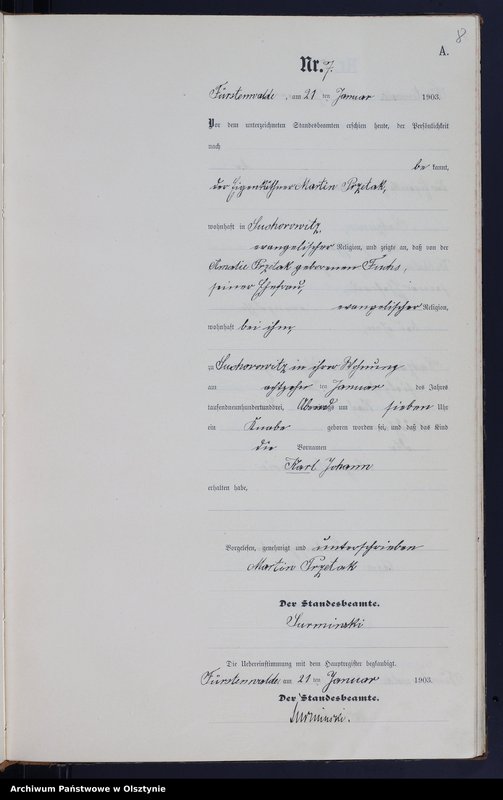 8
A.
Nr. 7.
Fürstenwalde, am 21 ten Januar 1903.
Vor dem unterzeichneten Standesbeamten erschien heute, der Persönlichkeit
nach
be kannt,
der Eigenkäthner Martin Przetak,
wohnhaft in Suchorowitz,
evangelischer Religion, und zeigte an, daß von der
Amalie Przetak geborenen Fuchs,
seiner Ehefrau,
evangelischer Religion,
wohnhaft bei ihm,
zu Suchorowitz in ihrer Wohnung
am achtzehn ten Januar des Jahres
tausendneunhundertunddrei, Abends um sieben Uhr
ein Knabe geboren worden sei, und daß das Kind
die Vornamen
Karl Johann
erhalten habe,
Vorgelesen, genehmigt und unterschrieben
Martin Przetak
Der Standesbeamte.
Surminski
Die Uebereinstimmung mit dem Hauptregister beglaubigt.
Fürstenwalde, am 21 ten Januar 1903.
Der Standesbeamte.
Surminski.
Archiwum Państwowe w Olsztynie